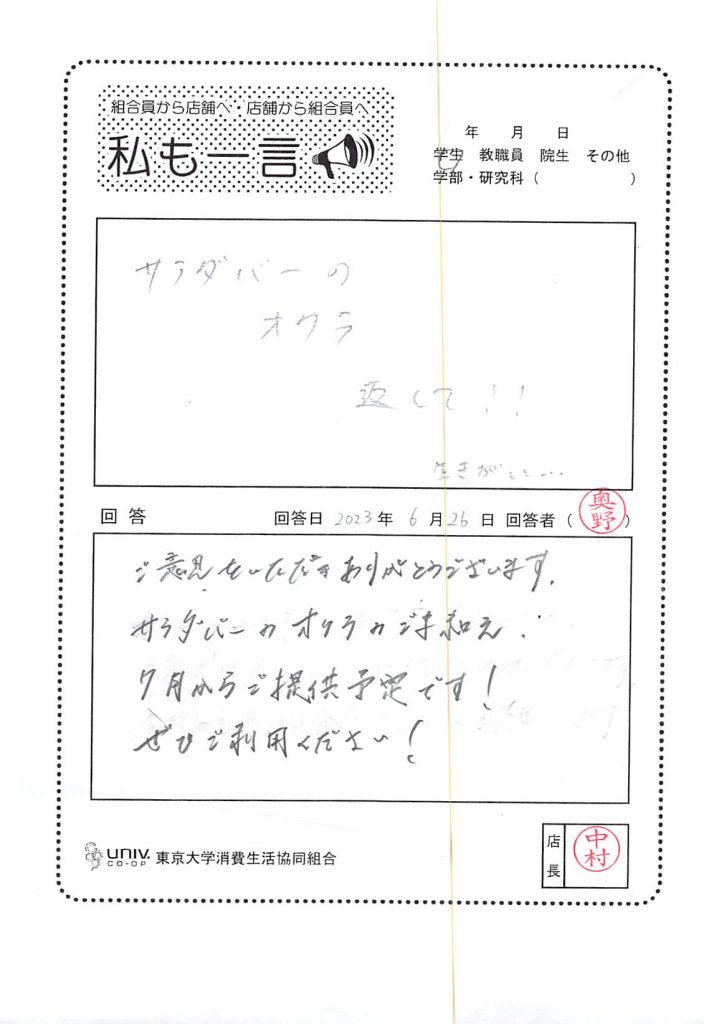 組合員から店舗へ・店舗から組合員へ
私も一言
年 月 日
学生 教職員 院生 その他
学部・研究科( )
サラダバーの
オクラ
返して!!
生きがい…
回答 回答日 2023年 6月26日 回答者(奥野)
ご意見をいただきありがとうございます。
サラダバーのオクラのごま和え、
7月からご提供予定です!
ぜひご利用ください!
UNIV. CO-OP 東京大学消費生活協同組合
店長 中村